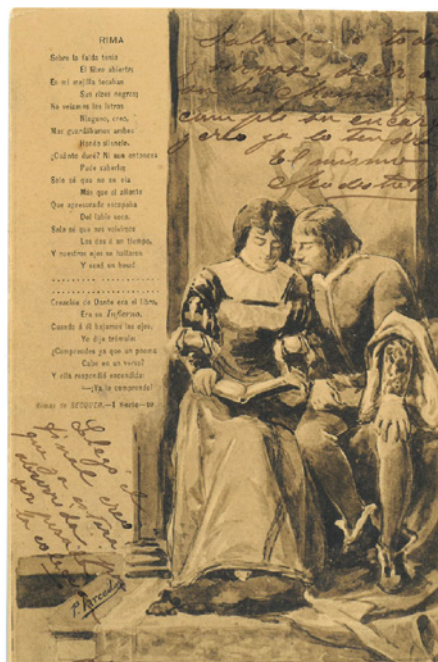 RIMA
Sobre la falda tenía
El libro abierto;
En mi mejilla tocaban
Sus rizos negros;
No veíamos las letras
Ninguno, creo,
Mas guardábamos ambos
Hondo silencio.
¿Cuánto duró? Ni aun entonces
Pude saberlo;
Sólo sé que no se oía
Más que el aliento
Que apresurado escapaba
Del labio seco.
Sólo sé que nos volvimos
Los dos á un tiempo,
Y nuestros ojos se hallaron
Y sonó un beso!
Creación de Dante era el libro,
Era su Infierno.
Cuando á él bajamos los ojos,
Yo dije trémulo:
¿Comprendes ya que un poema
Cabe en un verso?
Y ella respondió encendida:
—¡Ya lo comprendo!
Rimas de BECQUER.—I Serie—
Saluda a todos
decir a
su
cumplo su encargo
y creo ya lo tendrá
El mismo
Modesto
Llegó el
final creo
que ya estará
aburrida
P.